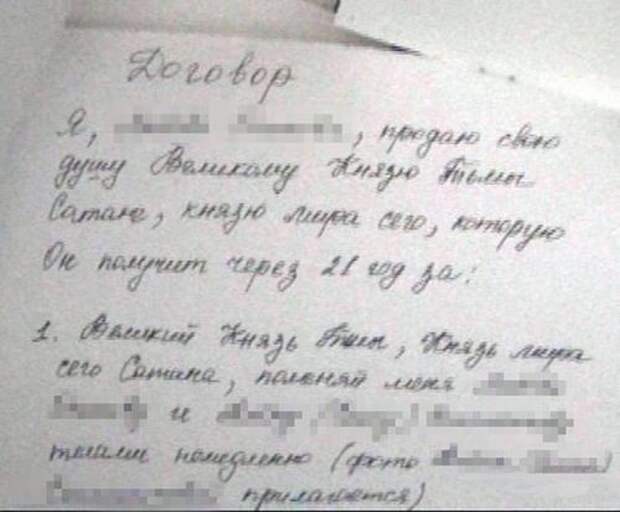 Договор
Я, , продаю свою
душу Великому Князю Тьмы
Сатане, князю мира сего, которую
Он получит через 21 год за:
1. Великий Князь Тьмы, Князь мира
сего Сатана, меня
и
телами немедленно (фото
прилагается)